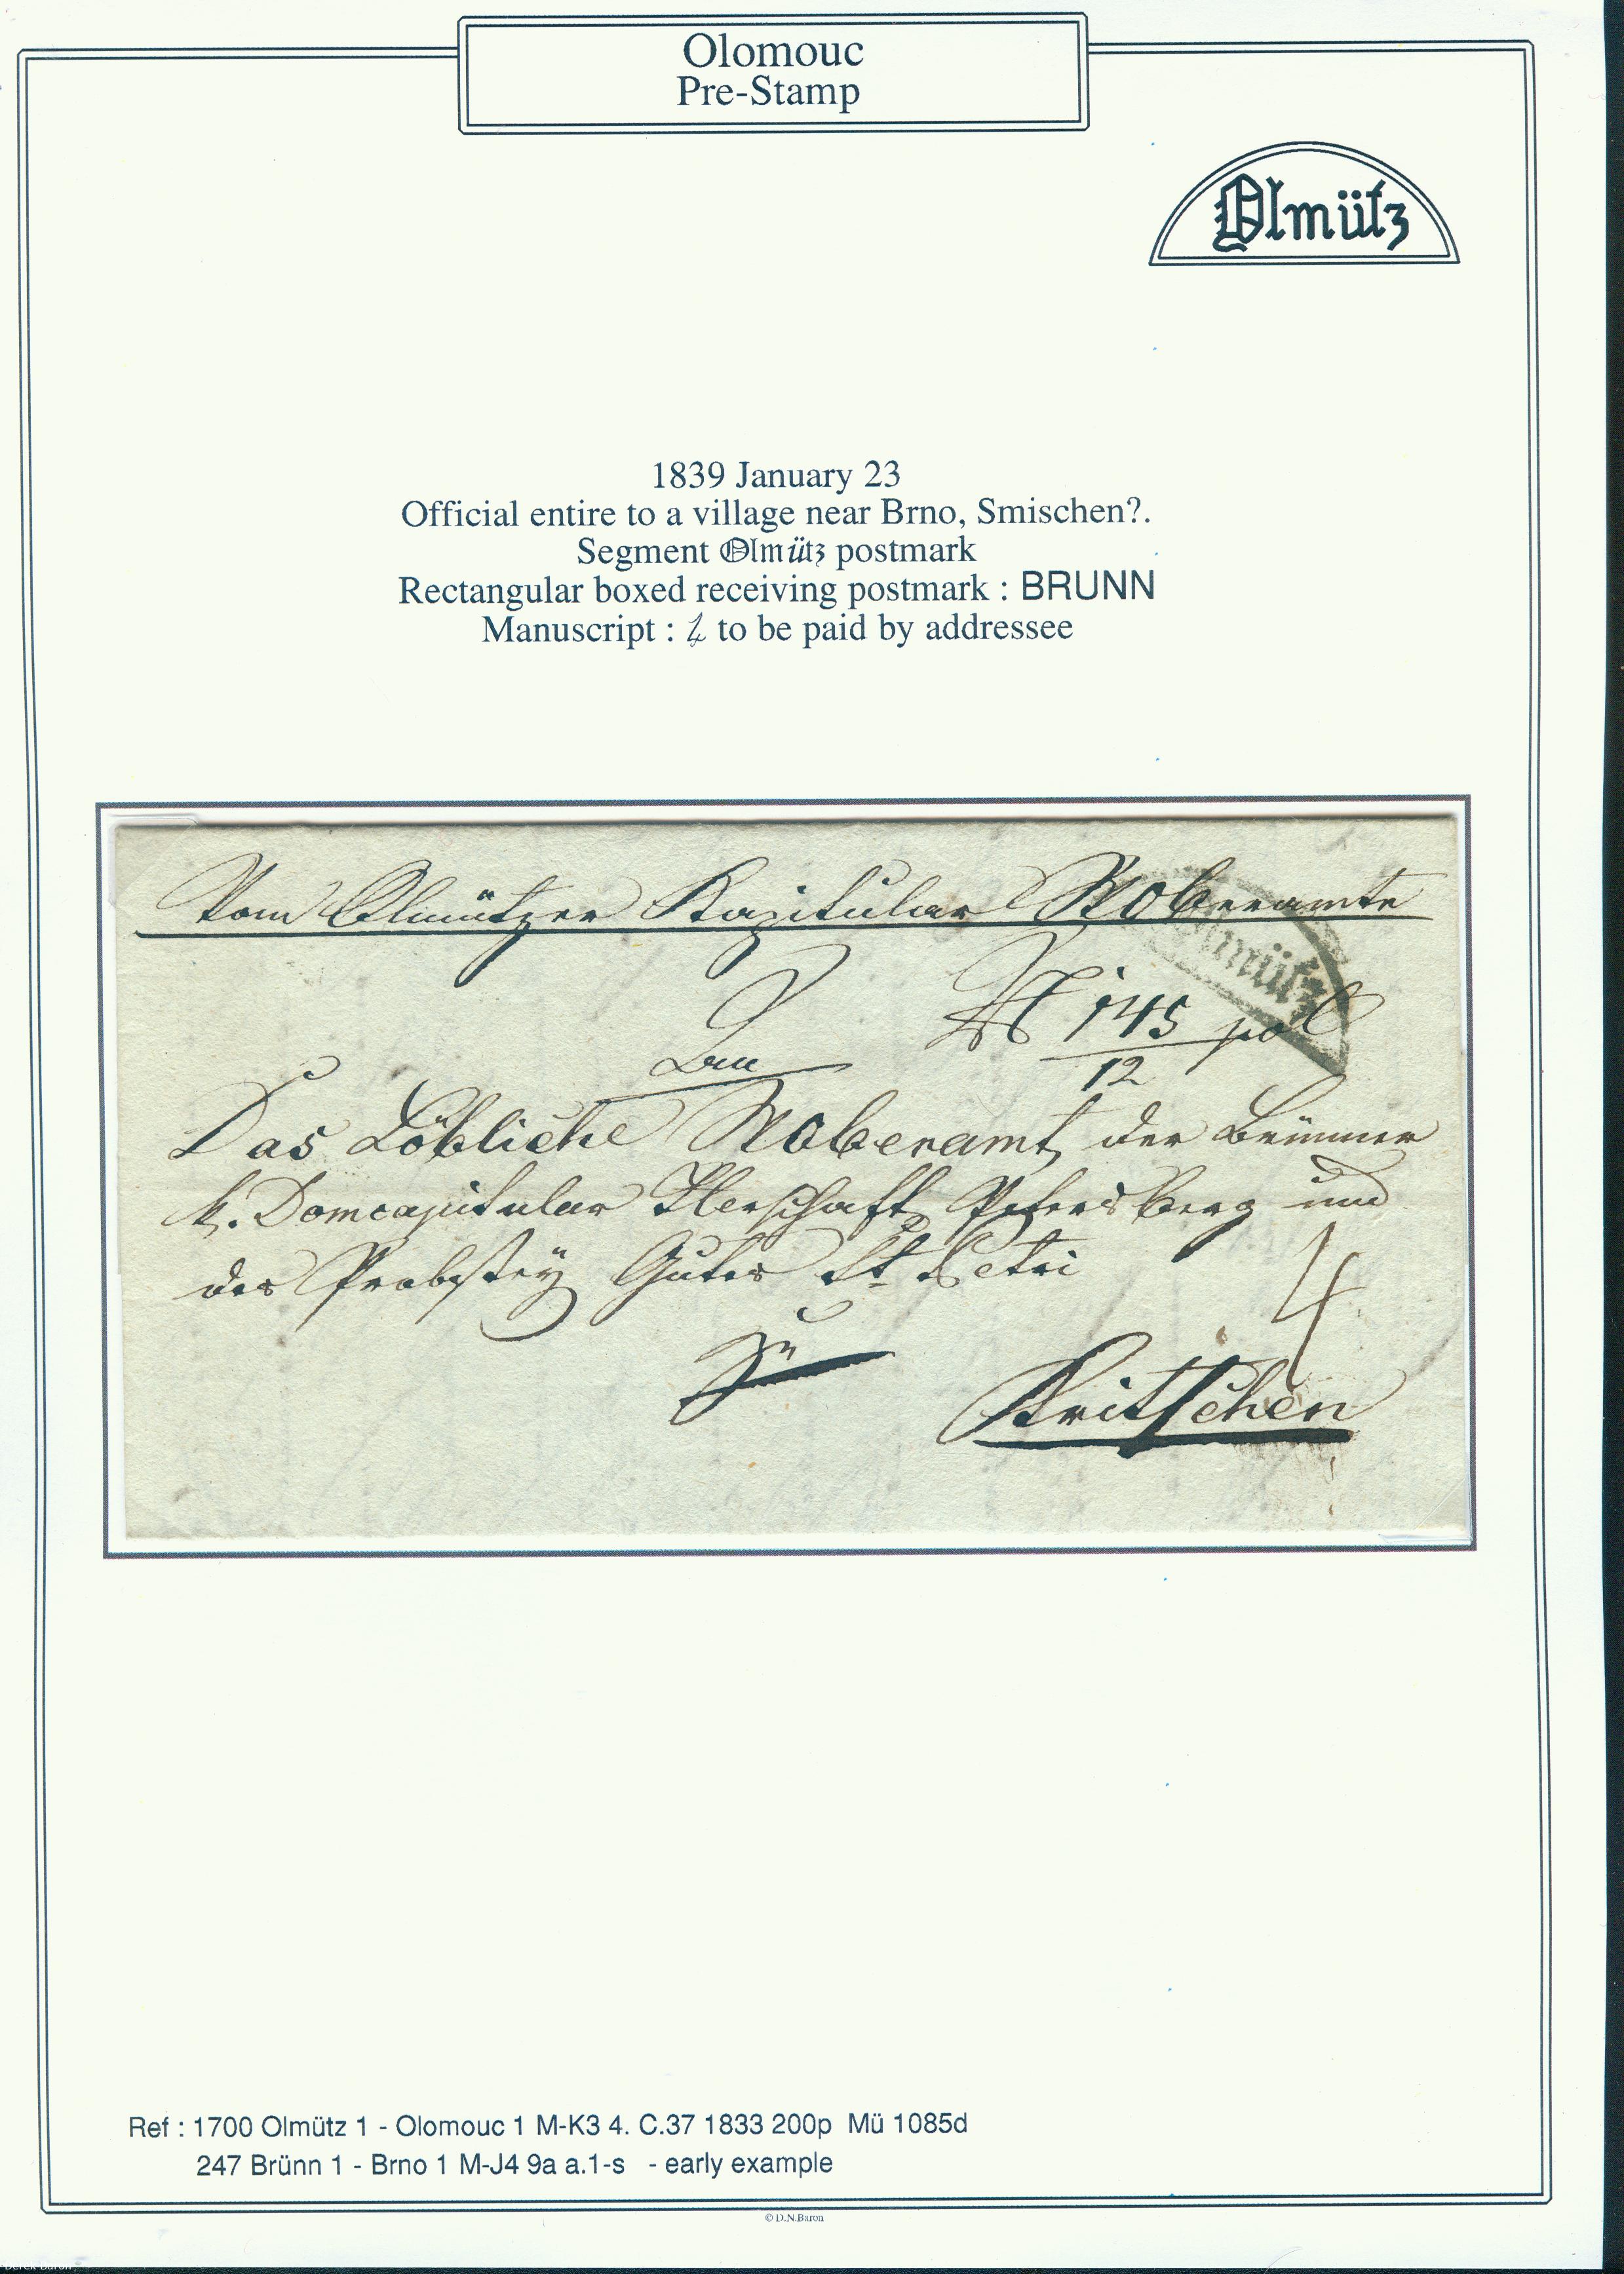 Olomouc
Pre-Stamp
Olmütz
1839 January 23
Official entire to a village near Brno, Smischen?.
Segment Olmütz postmark
Rectangular boxed receiving postmark : BRUNN
Manuscript : 4 to be paid by addressee
Vom Olmützer Kapitular Woberamte
Olmütz
An
N 145 pol
12
Das Löbliche Woberamt, der Brünner
k. Domcapitular Herschaft Petersberg und
des Probstey Gutes St. Petri
4
zu
Kritschen
Ref : 1700 Olmütz 1 - Olomouc 1 M-K3 4. C.37 1833 200p Mü 1085d
247 Brünn 1 - Brno 1 M-J4 9a a.1-s - early example
© D.N.Baron
Derek Baron